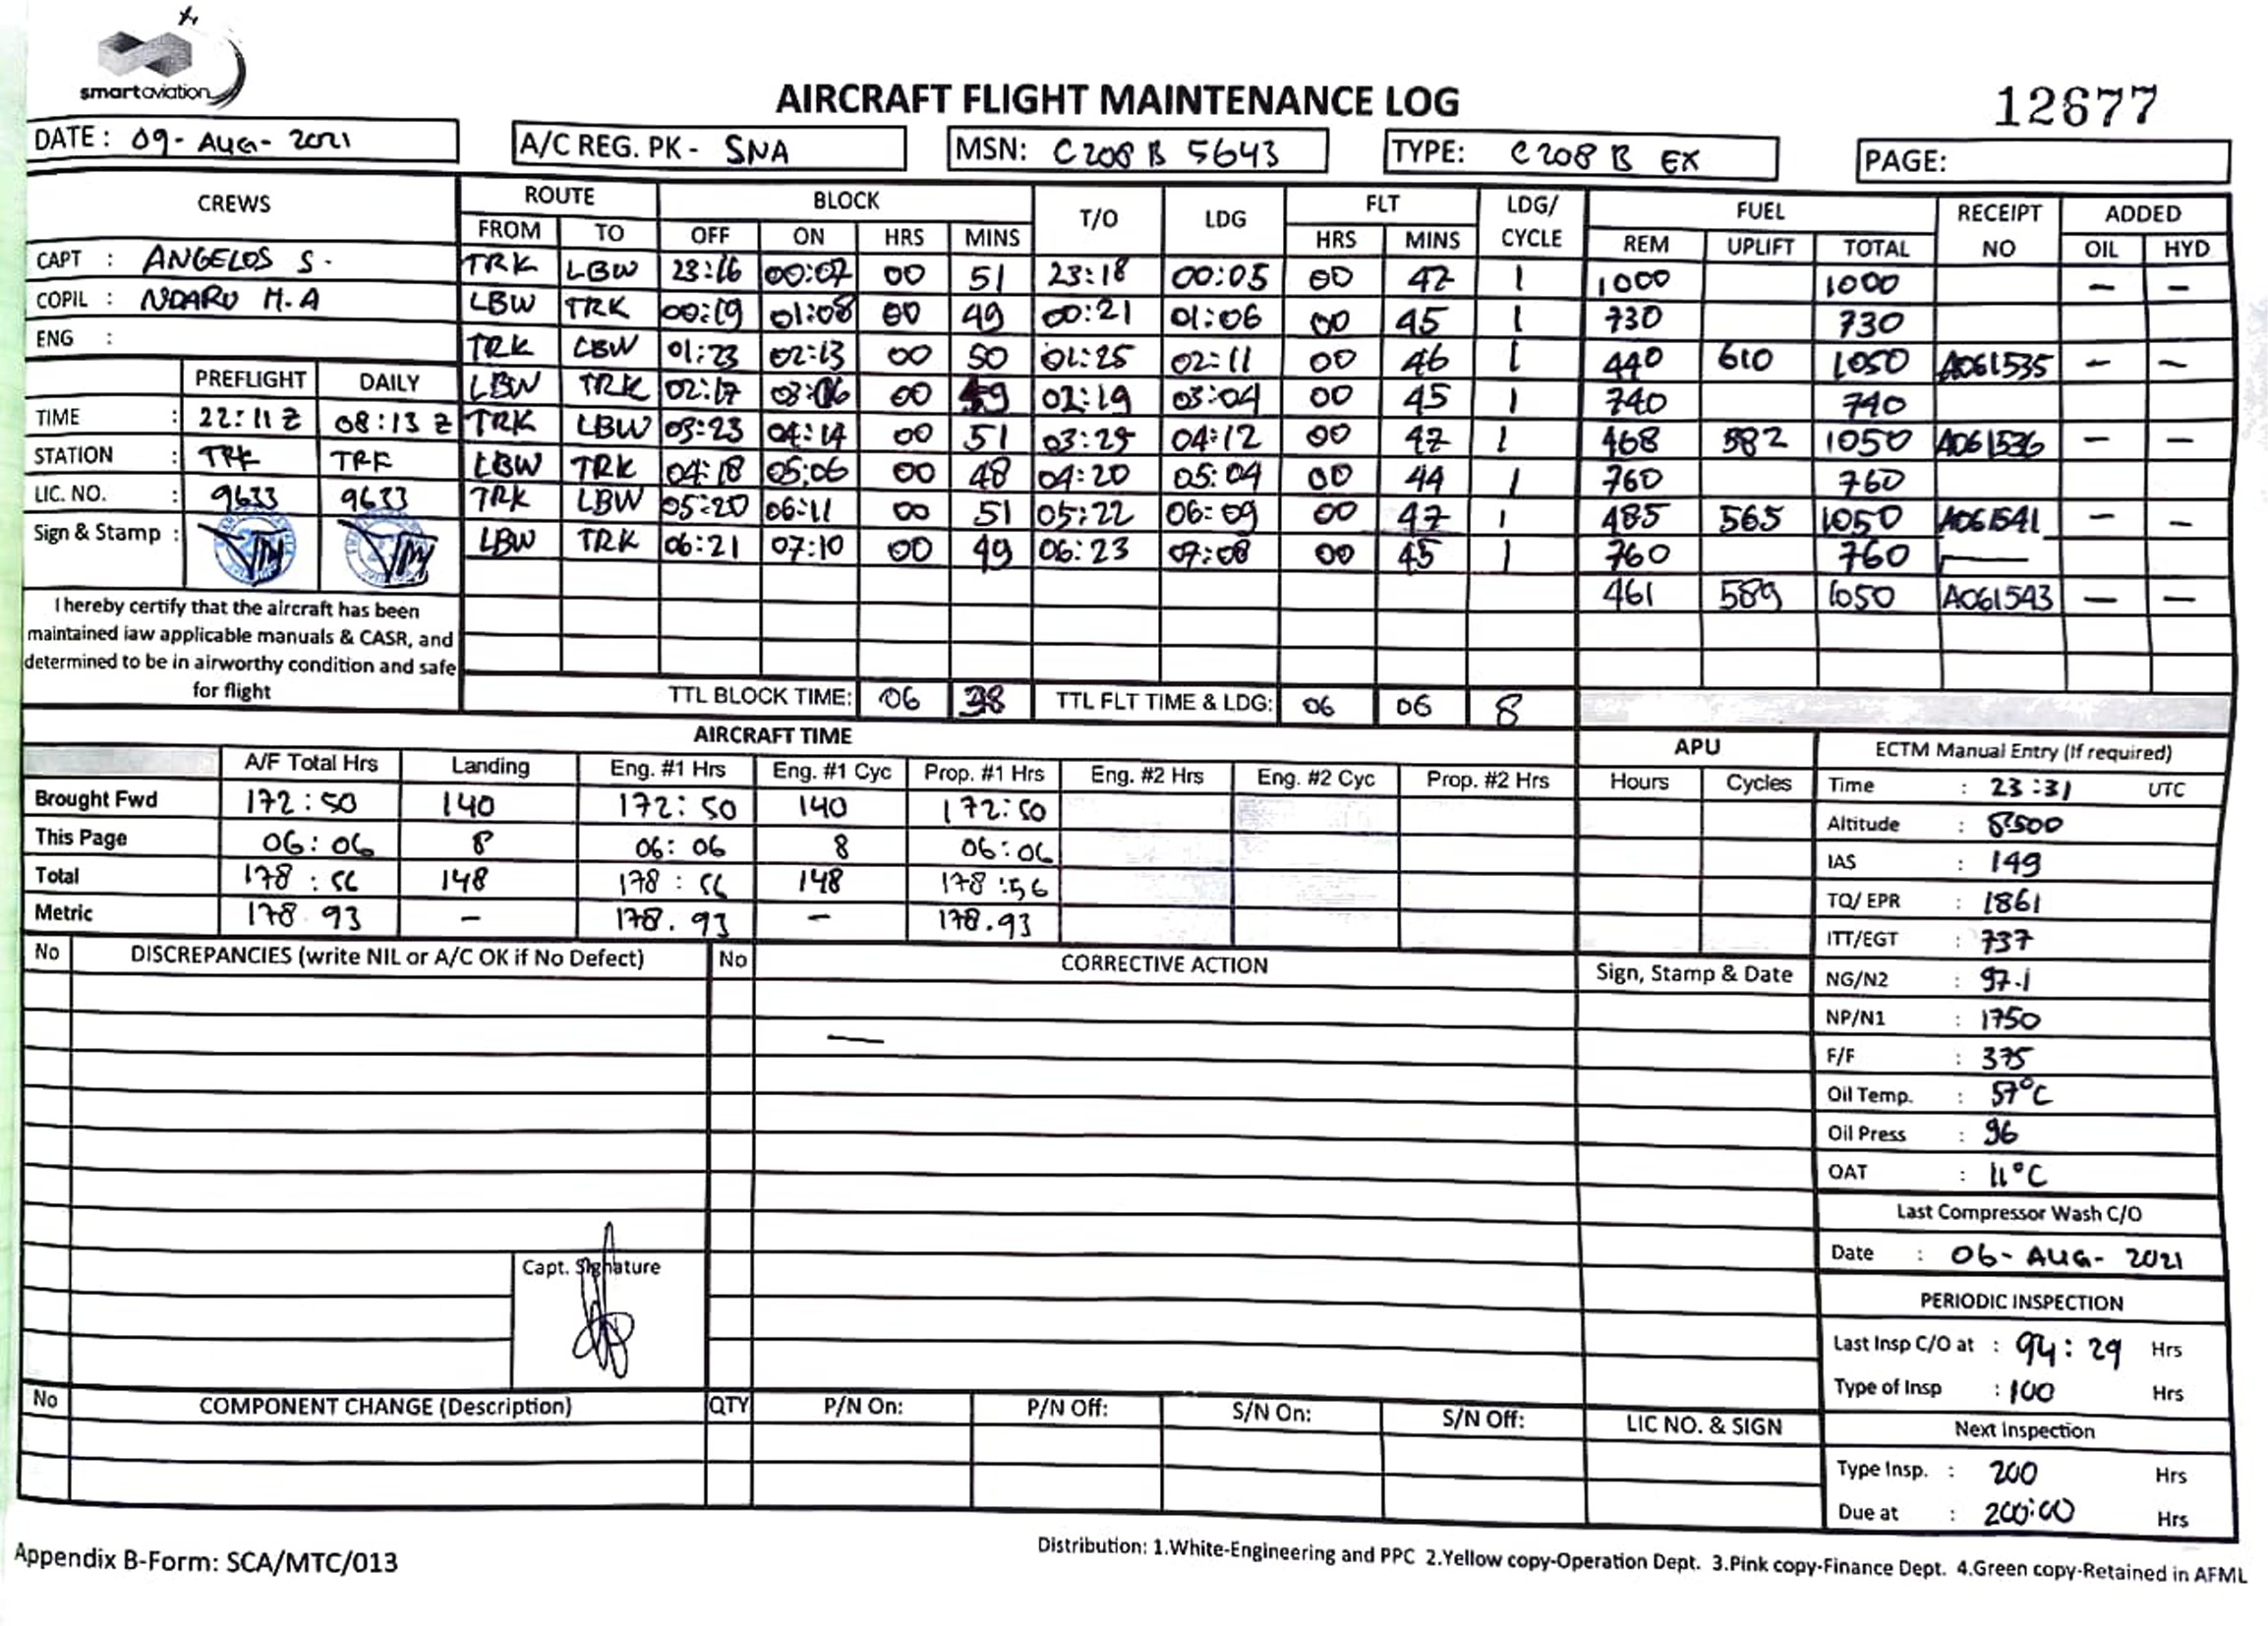 smartaviation
AIRCRAFT FLIGHT MAINTENANCE LOG
12677
DATE : 09- AUG- 2021
A/C REG. PK - SNA
MSN: C208 B 5643
TYPE: C208 B EX
PAGE:
CREWS
ROUTE BLOCK T/O LDG FLT LDG/ CYCLE FUEL RECEIPT NO ADDED
FROM TO OFF ON HRS MINS HRS MINS REM UPLIFT TOTAL OIL HYD
CAPT : ANGELOS S.
COPIL : NDARU M.A
ENG :
TRK LBW 23:16 00:07 00 51 23:18 00:05 00 47 1 1000 1000 — —
LBW TRK 00:19 01:08 00 49 00:21 01:06 00 45 1 730 730
TRK LBW 01:23 02:13 00 50 01:25 02:11 00 46 1 440 610 1050 A061535 — —
LBW TRK 02:17 03:06 00 49 02:19 03:04 00 45 1 740 740
TRK LBW 03:23 04:14 00 51 03:25 04:12 00 47 1 468 582 1050 A061536 — —
LBW TRK 04:18 05:06 00 48 04:20 05:04 00 44 1 760 760
TRK LBW 05:20 06:11 00 51 05:22 06:09 00 47 1 485 565 1050 A061541 — —
LBW TRK 06:21 07:10 00 49 06:23 07:08 00 45 1 760 760 —
461 589 1050 A061543 — —
PREFLIGHT DAILY
TIME : 22:11 Z 08:13 Z
STATION : TRK TRK
LIC. NO. : 9633 9633
Sign & Stamp :
I hereby certify that the aircraft has been
maintained iaw applicable manuals & CASR, and
determined to be in airworthy condition and safe
for flight
TTL BLOCK TIME: 06 38 TTL FLT TIME & LDG: 06 06 8
AIRCRAFT TIME
A/F Total Hrs Landing Eng. #1 Hrs Eng. #1 Cyc Prop. #1 Hrs Eng. #2 Hrs Eng. #2 Cyc Prop. #2 Hrs
Brought Fwd 172:50 140 172:50 140 172:50
This Page 06:06 8 06:06 8 06:06
Total 178:56 148 178:56 148 178:56
Metric 178.93 — 178.93 — 178.93
APU
Hours Cycles
ECTM Manual Entry (If required)
Time : 23:31 UTC
Altitude : 8500
IAS : 149
TQ/ EPR : 1861
ITT/EGT : 737
NG/N2 : 97.1
NP/N1 : 1750
F/F : 375
Oil Temp. : 57°C
Oil Press : 96
OAT : 11°C
Last Compressor Wash C/O
Date : 06- AUG- 2021
PERIODIC INSPECTION
Last Insp C/O at : 94:29 Hrs
Type of Insp : 100 Hrs
Next Inspection
Type Insp. : 200 Hrs
Due at : 200:00 Hrs
No DISCREPANCIES (write NIL or A/C OK if No Defect) No CORRECTIVE ACTION Sign, Stamp & Date
—
Capt. Signature
No COMPONENT CHANGE (Description) QTY P/N On: P/N Off: S/N On: S/N Off: LIC NO. & SIGN
Appendix B-Form: SCA/MTC/013
Distribution: 1.White-Engineering and PPC 2.Yellow copy-Operation Dept. 3.Pink copy-Finance Dept. 4.Green copy-Retained in AFML